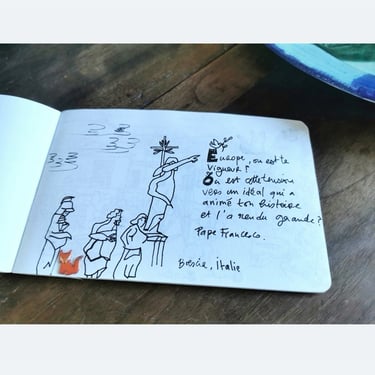 Europe, ou est te
vigueur?
Où est cette tension
vers un idéal qui a
animé ton histoire
et l'a rendu grande?
Pape Francesco.
Brescia, Italie